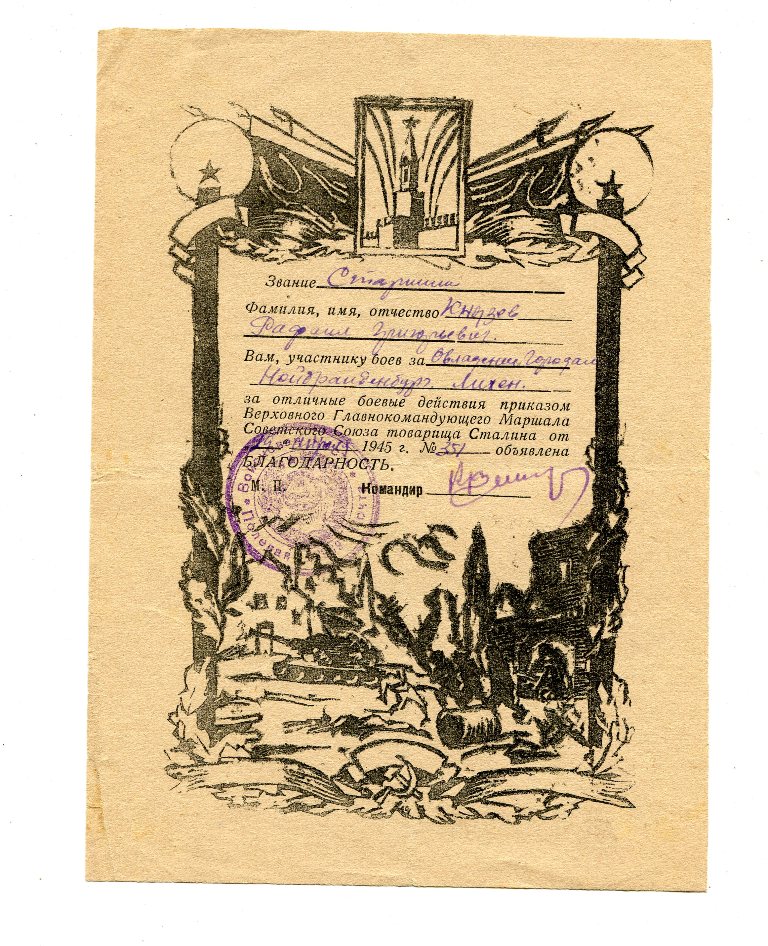 Звание Старшина
Фамилия, имя, отчество Князев
Рафаил Григорьевич.
Вам, участнику боев за Овладении Городам
Нойбранденбург. Лихен.
за отличные боевые действия приказом
Верховного Главнокомандующего Маршала
Советского Союза товарища Сталина от
1945 г. № 351 объявлена
БЛАГОДАРНОСТЬ.
М. П. Командир
Полевая